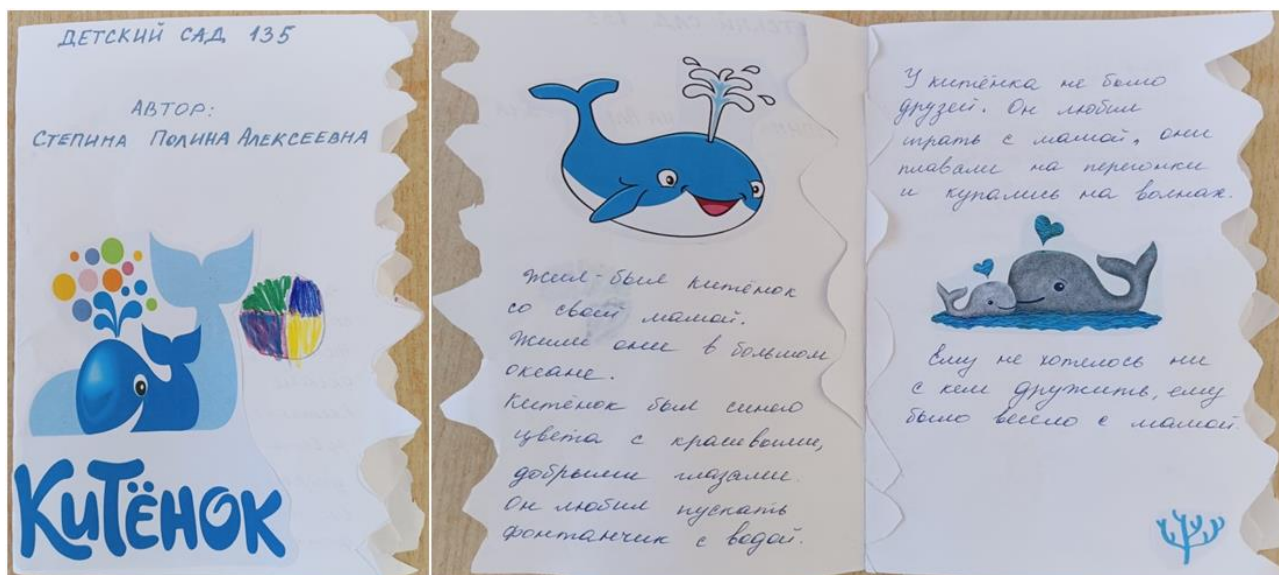 ДЕТСКИЙ САД 135
АВТОР:
СТЕПИНА ПОЛИНА АЛЕКСЕЕВНА
КИТЁНОК
Жил-был китёнок
со своей мамой.
Жили они в большом
океане.
Китёнок был синего
цвета с красивыми,
добрыми глазами.
Он любил пускать
фонтанчик с водой.
У китёнка не было
друзей. Он любил
играть с мамой, они
плавали на перегонки
и купались на волнах.
Ему не хотелось ни
с кем дружить, ему
было весело с мамой.